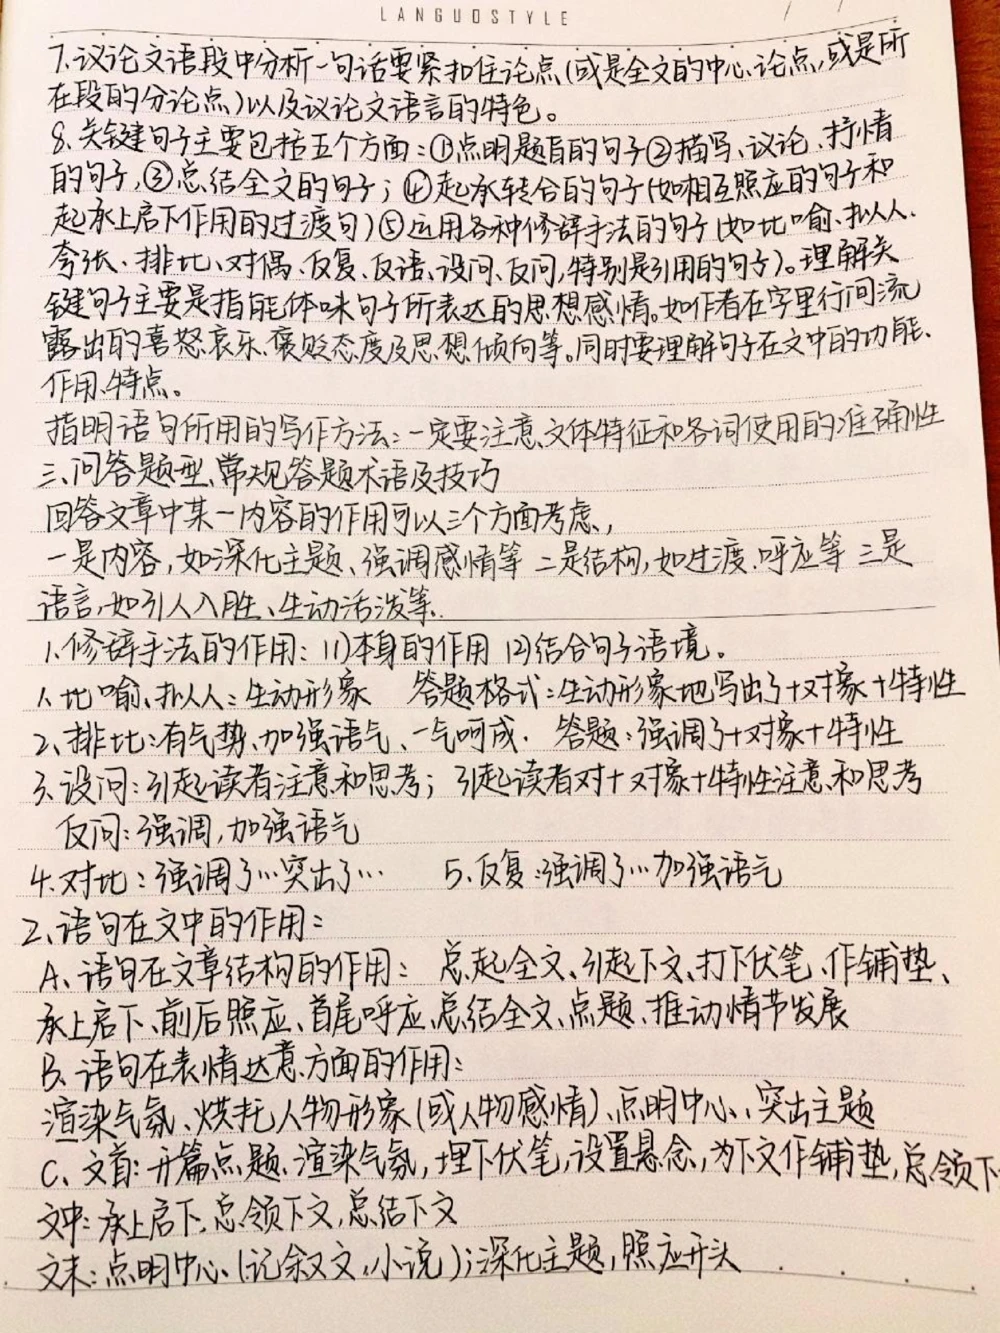 LANGUOSTYLE
7、议论文语段中分析一句话要紧扣住论点(或是全文的中心论点,或是所
在段的分论点)以及议论文语言的特色。
8、关键句子主要包括五个方面:①点明题旨的句子②描写、议论、抒情
的句子,③总结全文的句子;④起承转合的句子(如相互照应的句子和
起承上启下作用的过渡句)⑤运用各种修辞手法的句子(如比喻、拟人、
夸张、排比、对偶、反复、反语、设问、反问,特别是引用的句子)。理解关
键句子主要是指能体味句子所表达的思想感情。如作者在字里行间流
露出的喜怒哀乐、褒贬态度及思想倾向等。同时要理解句子在文中的功能、
作用、特点。
指明语句所用的写作方法:一定要注意文体特征和各词使用的准确性
三、问答题型、常规答题术语及技巧
回答文章中某一内容的作用可以三个方面考虑,
一是内容,如深化主题、强调感情等 二是结构,如过渡、呼应等 三是
语言,如引人入胜、生动活泼等.
1、修辞手法的作用:(1)本身的作用 (2)结合句子语境。
1、比喻、拟人:生动形象 答题格式:生动形象地写出了+对象+特性
2、排比:有气势、加强语气、一气呵成. 答题:强调了+对象+特性
3、设问:引起读者注意和思考; 引起读者对+对象+特性注意和思考
反问:强调,加强语气
4、对比:强调了…突出了… 5、反复:强调了…加强语气
2、语句在文中的作用:
A、语句在文章结构的作用: 总起全文、引起下文、打下伏笔、作铺垫、
承上启下、前后照应、首尾呼应、总结全文、点题、推动情节发展
B、语句在表情达意方面的作用:
渲染气氛、烘托人物形象(或人物感情)、点明中心、突出主题
C、文首:开篇点题、渲染气氛,埋下伏笔,设置悬念,为下文作铺垫,总领下
文中:承上启下,总领下文,总结下文
文末:点明中心(记叙文、小说);深化主题,照应开头